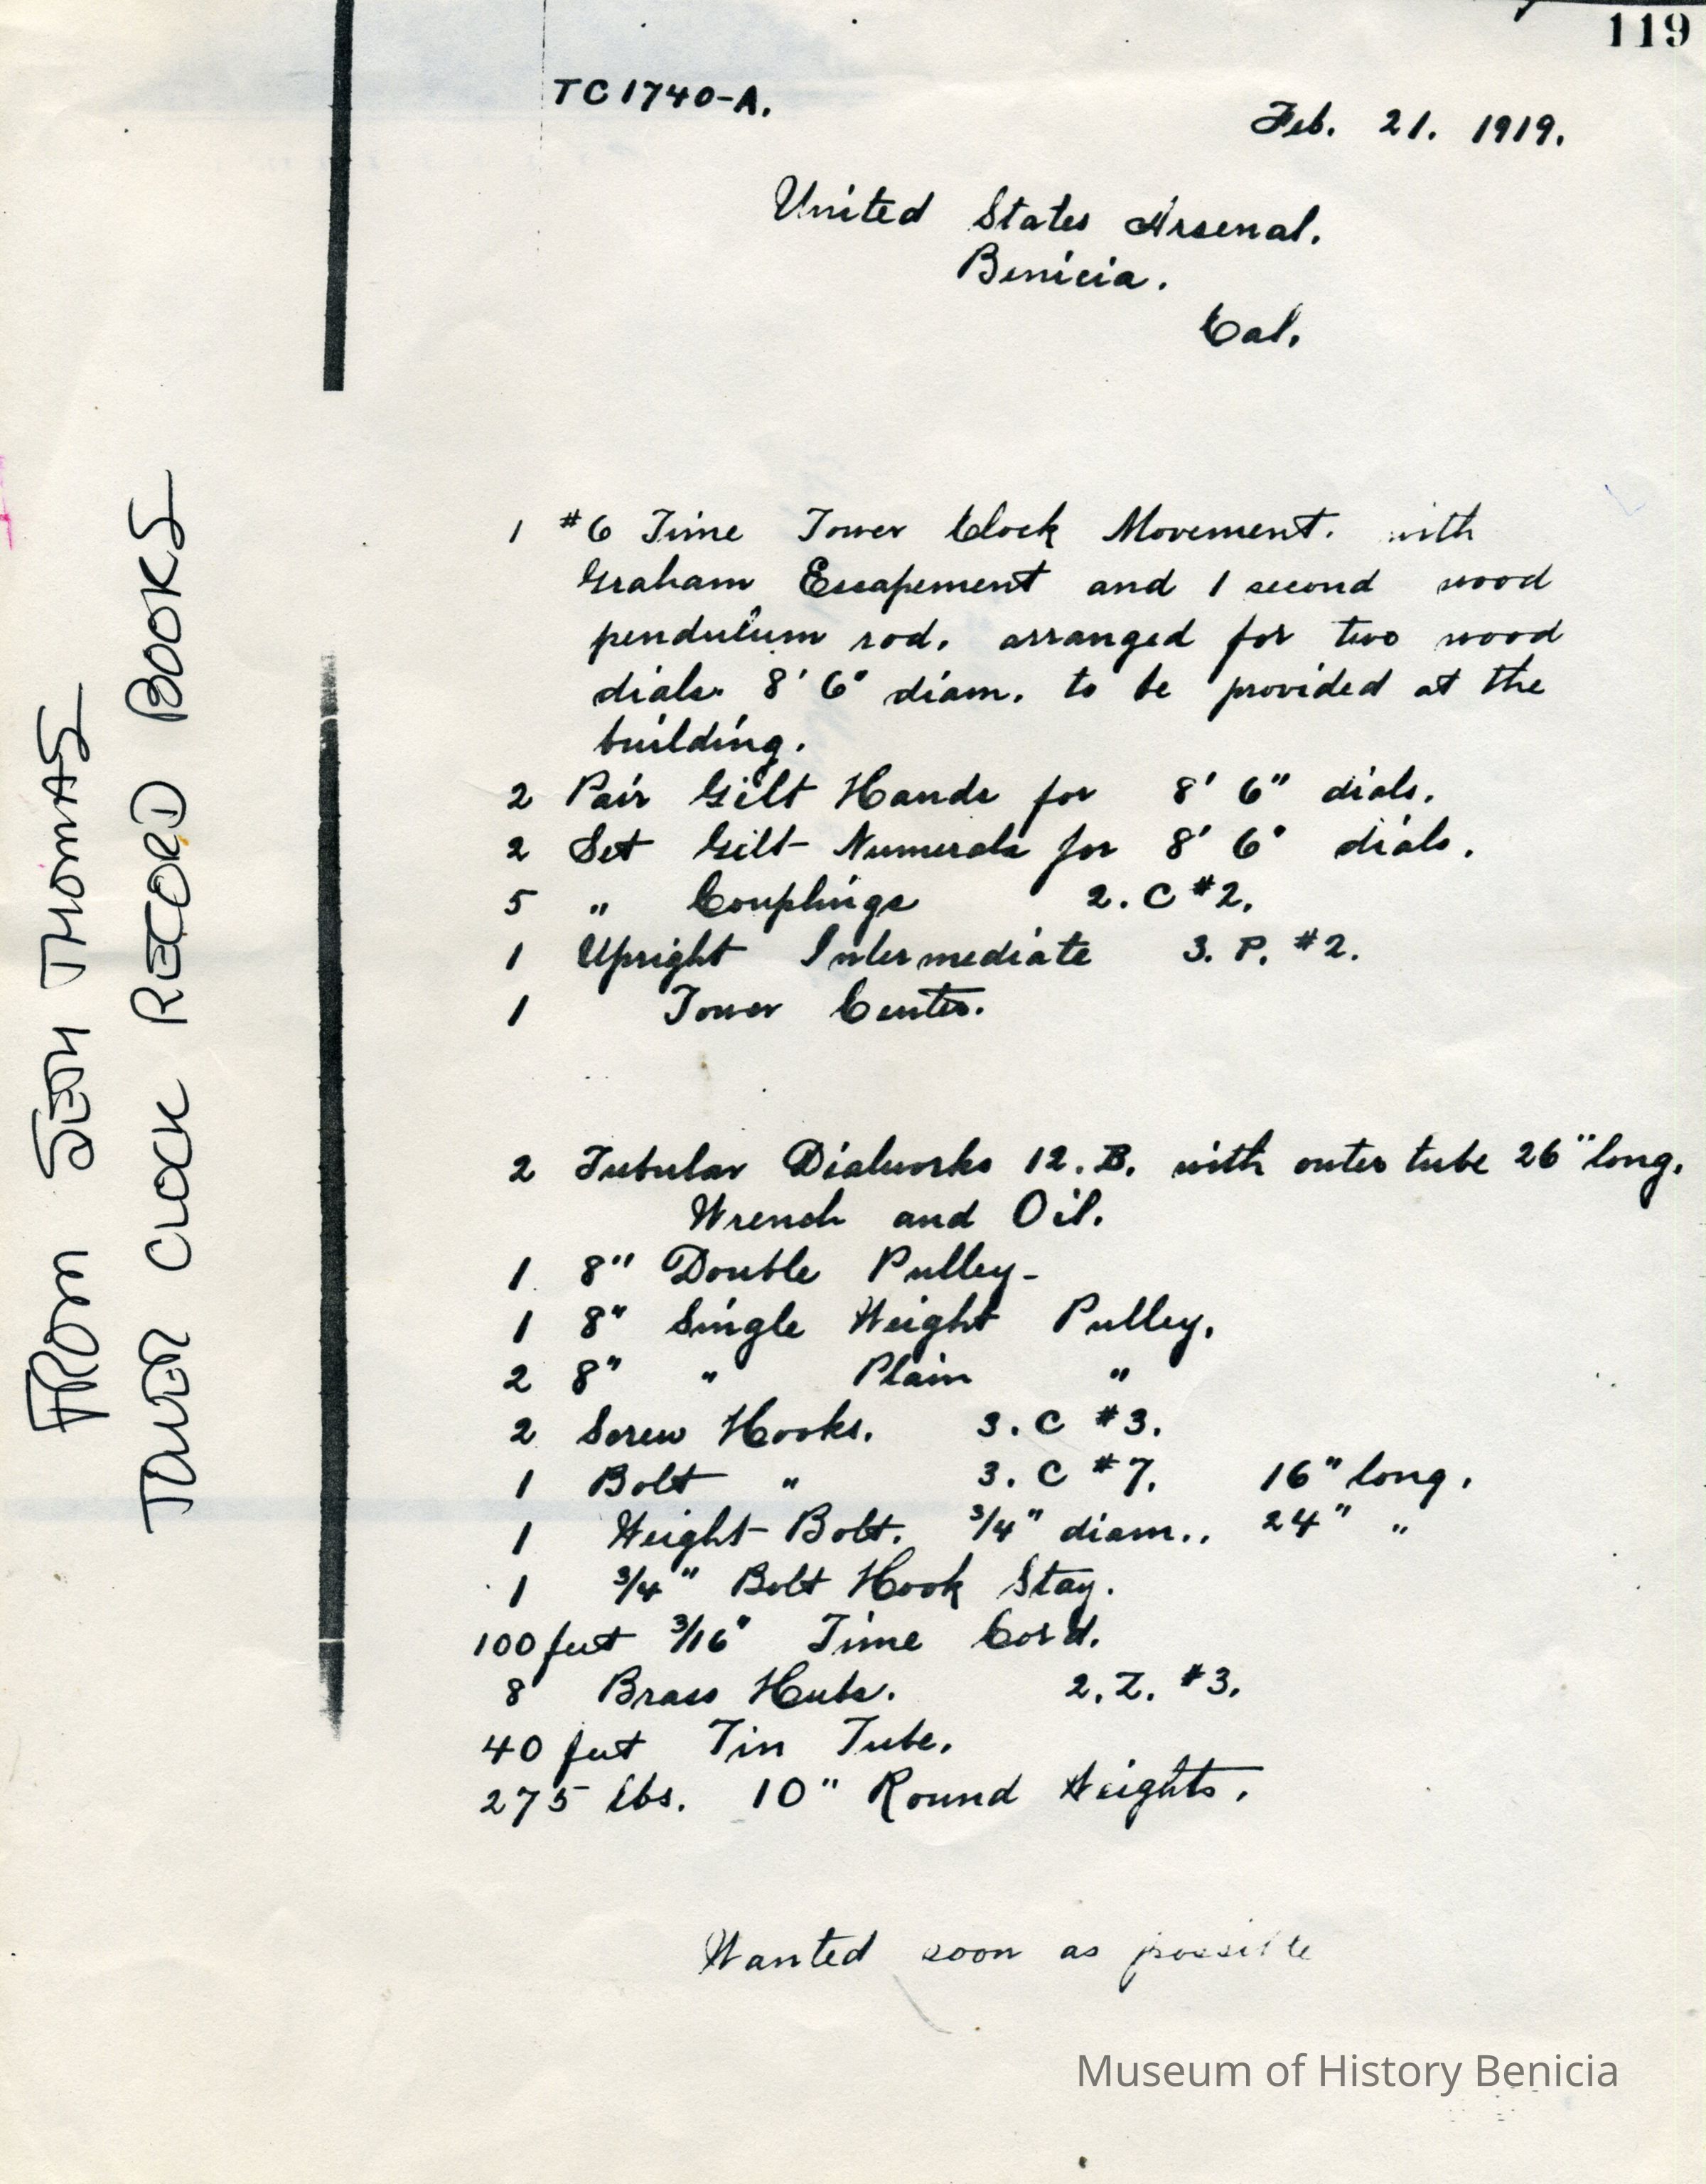 119
TC1740-A.
Feb. 21. 1919.
United States Arsenal.
Benicia.
Cal.
1 #6 Time Tower Clock Movement. with
Graham Escapement and 1 second wood
pendulum rod. arranged for two wood
dials. 8' 6" diam. to be provided at the
building.
2 Pair Gilt Hands for 8' 6" dials.
2 Set Gilt Numerals for 8' 6" dials.
5 " Couplings 2. C #2.
1 Upright Intermediate 3. P. #2.
1 Tower Center.
2 Tubular Dialworks 12. B. with outer tube 26" long.
Wrench and Oil.
1 8" Double Pulley-
1 8" Single Weight Pulley.
2 8" " Plain "
2 Screw Hooks. 3. C #3.
1 Bolt " 3. C #7. 16" long.
1 Weight Bolt. 3/4" diam.. 24" "
1 3/4" Bolt Hook Stay.
100 feet 3/16" Time Cord.
8 Brass Hubs. 2. Z. #3.
40 feet Tin Tube.
275 lbs. 10" Round Weights.
Wanted soon as possible
FROM SETH THOMAS
TOWER CLOCK RECORD BOOKS
Museum of History Benicia